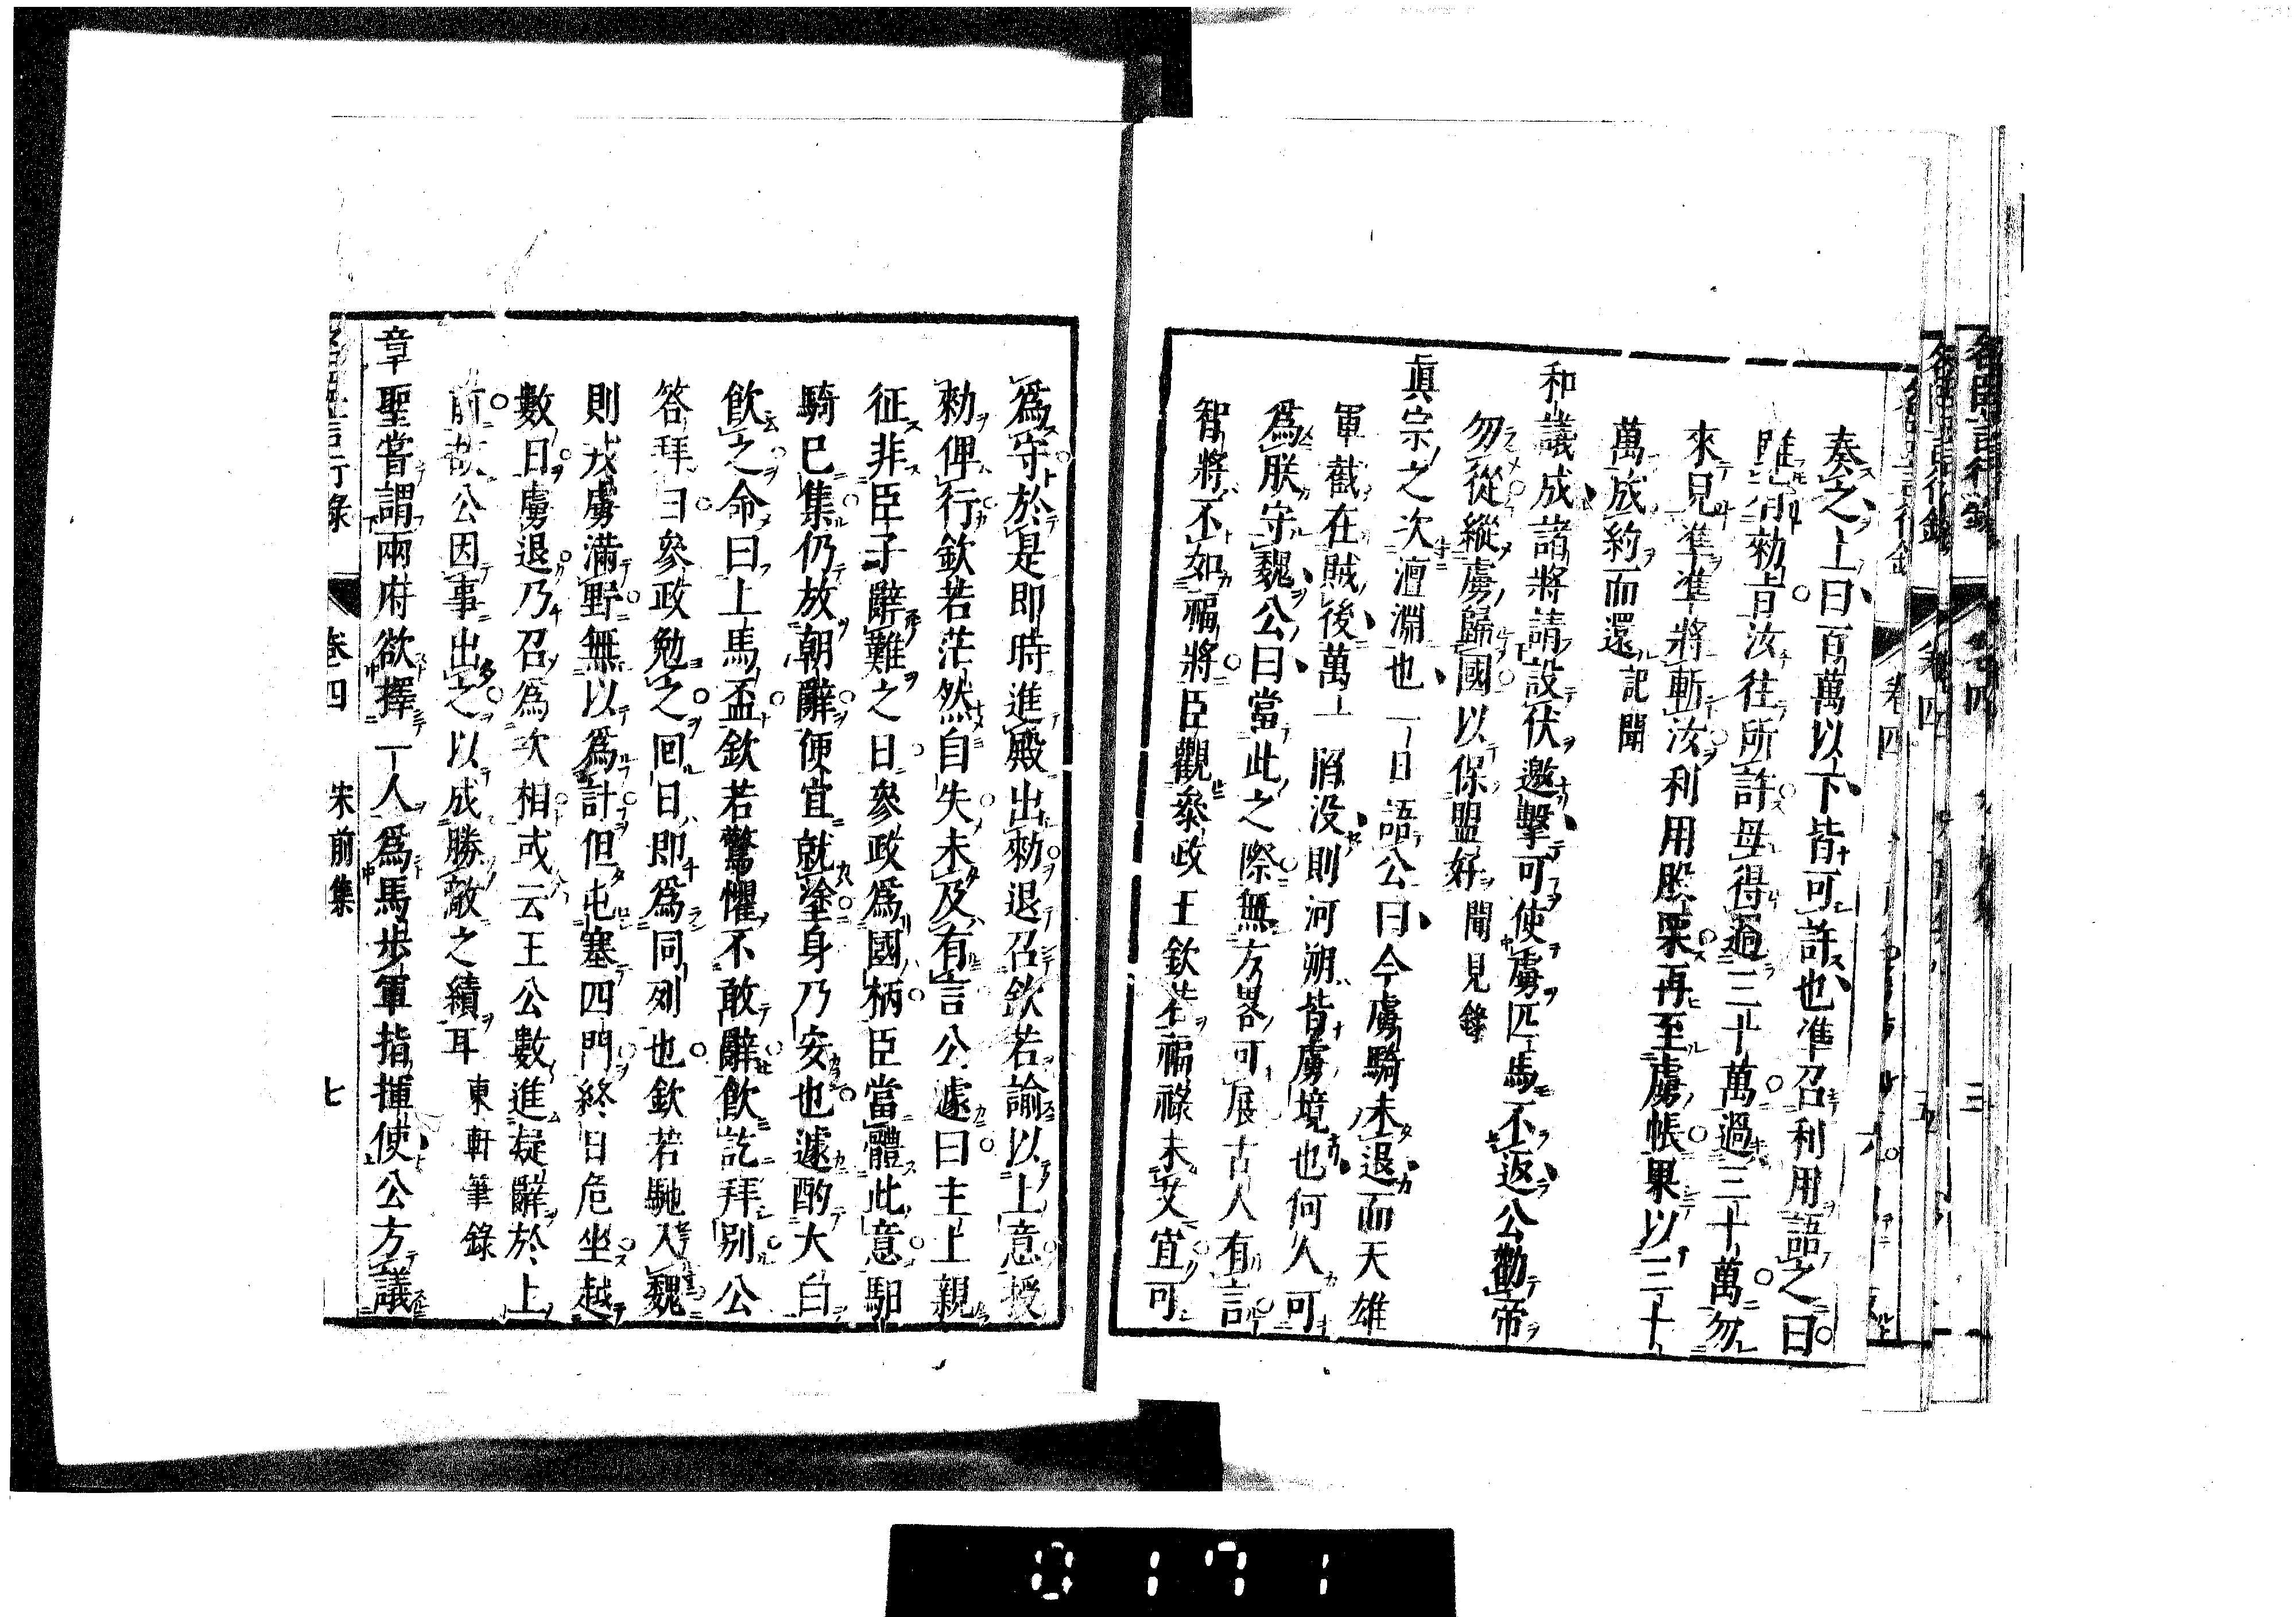 奏之上曰百萬以下皆可許也準召利用語之曰
雖有勅旨汝往所許毋得過三十萬過三十萬勿
來見準準將斬汝利用股栗再至虜帳果以三十
萬成約而還記聞
和議成諸將請設伏邀擊可使虜匹馬不返公勸帝
勿從縱虜歸國以保盟好聞見錄
眞宗之次澶淵也一日語公曰今虜騎未退而天雄
軍截在賊後萬一陷没則河朔皆虜境也何人可
爲朕守魏公曰當此之際無方畧可展古人有言
智將不如福將臣觀參政王欽若福祿未艾宜可
爲守於是即時進殿出勅退召欽若諭以上意授
勅俾行欽若茫然自失未及有言公遽曰主上親
征非臣子辭難之日參政爲國柄臣當體此意馹
騎已集仍放朝辭便宜就塗身乃安也遽酌大白
飲之命曰上馬盃欽若驚懼不敢辭飲訖拜別公
答拜曰參政勉之回日即爲同列也欽若馳入魏
則戎虜滿野無以爲計但屯塞四門終日危坐越
數日虜退乃召爲次相或云王公數進疑辭於上
前故公因事出之以成勝敵之績耳東軒筆錄
章聖嘗謂兩府欲擇一人爲馬步軍指揮使公方議
名臣言行錄 卷四 宋前集 七
0171